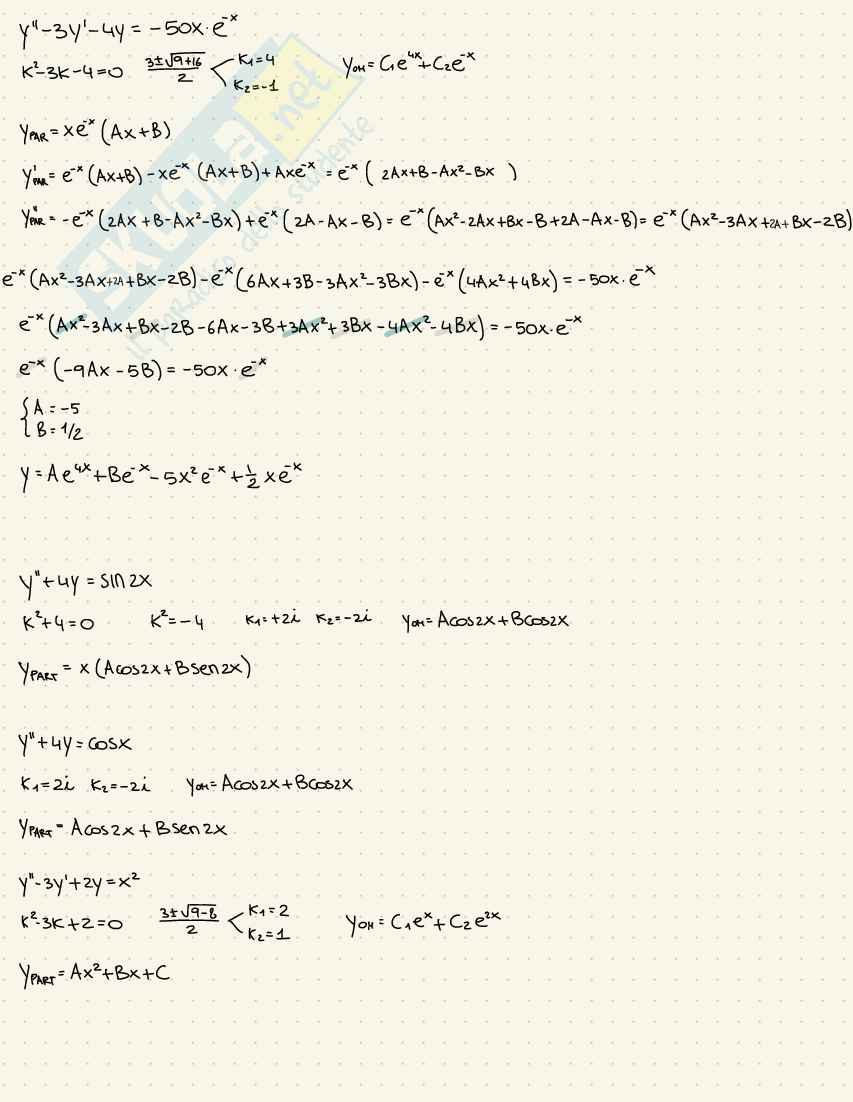 y''-3y'-4y = -50x·e^-x
k²-3k-4=0 3±√9+16/2 k₁=4 k₂=-1 yOH= C₁e^4x+C₂e^-x
yPAR = xe^-x (Ax+B)
y'PAR = e^-x (Ax+B) - xe^-x (Ax+B) + Axe^-x = e^-x ( 2Ax+B-Ax²-Bx )
y''PAR = -e^-x (2Ax+B-Ax²-Bx) + e^-x (2A-Ax-B) = e^-x (Ax²-2Ax+Bx-B+2A-Ax-B) = e^-x (Ax²-3Ax+2A+Bx-2B)
e^-x (Ax²-3Ax+2A+Bx-2B) - e^-x (6Ax+3B-3Ax²-3Bx) - e^-x (4Ax²+4Bx) = -50x·e^-x
e^-x (Ax²-3Ax+Bx-2B-6Ax-3B+3Ax²+3Bx-4Ax²-4Bx) = -50x·e^-x
e^-x (-9Ax-5B) = -50x·e^-x
{ A = -5
B = 1/2
y = Ae^4x+Be^-x - 5x²e^-x + 1/2 xe^-x
y''+4y = sin2x
k²+4=0 k²=-4 k₁=+2i k₂=-2i yOH= Acos2x+Bcos2x
yPART = x (Acos2x+Bsen2x)
y''+4y = cosx
k₁=2i k₂=-2i yOH= Acos2x+Bcos2x
yPART = Acos2x+Bsen2x
y''-3y'+2y=x²
k²-3k+2=0 3±√9-8/2 k₁=2 k₂=1 yOH = C₁e^x+C₂e^2x
yPART = Ax²+Bx+C
SKUOLA.net
il paradiso dello studente